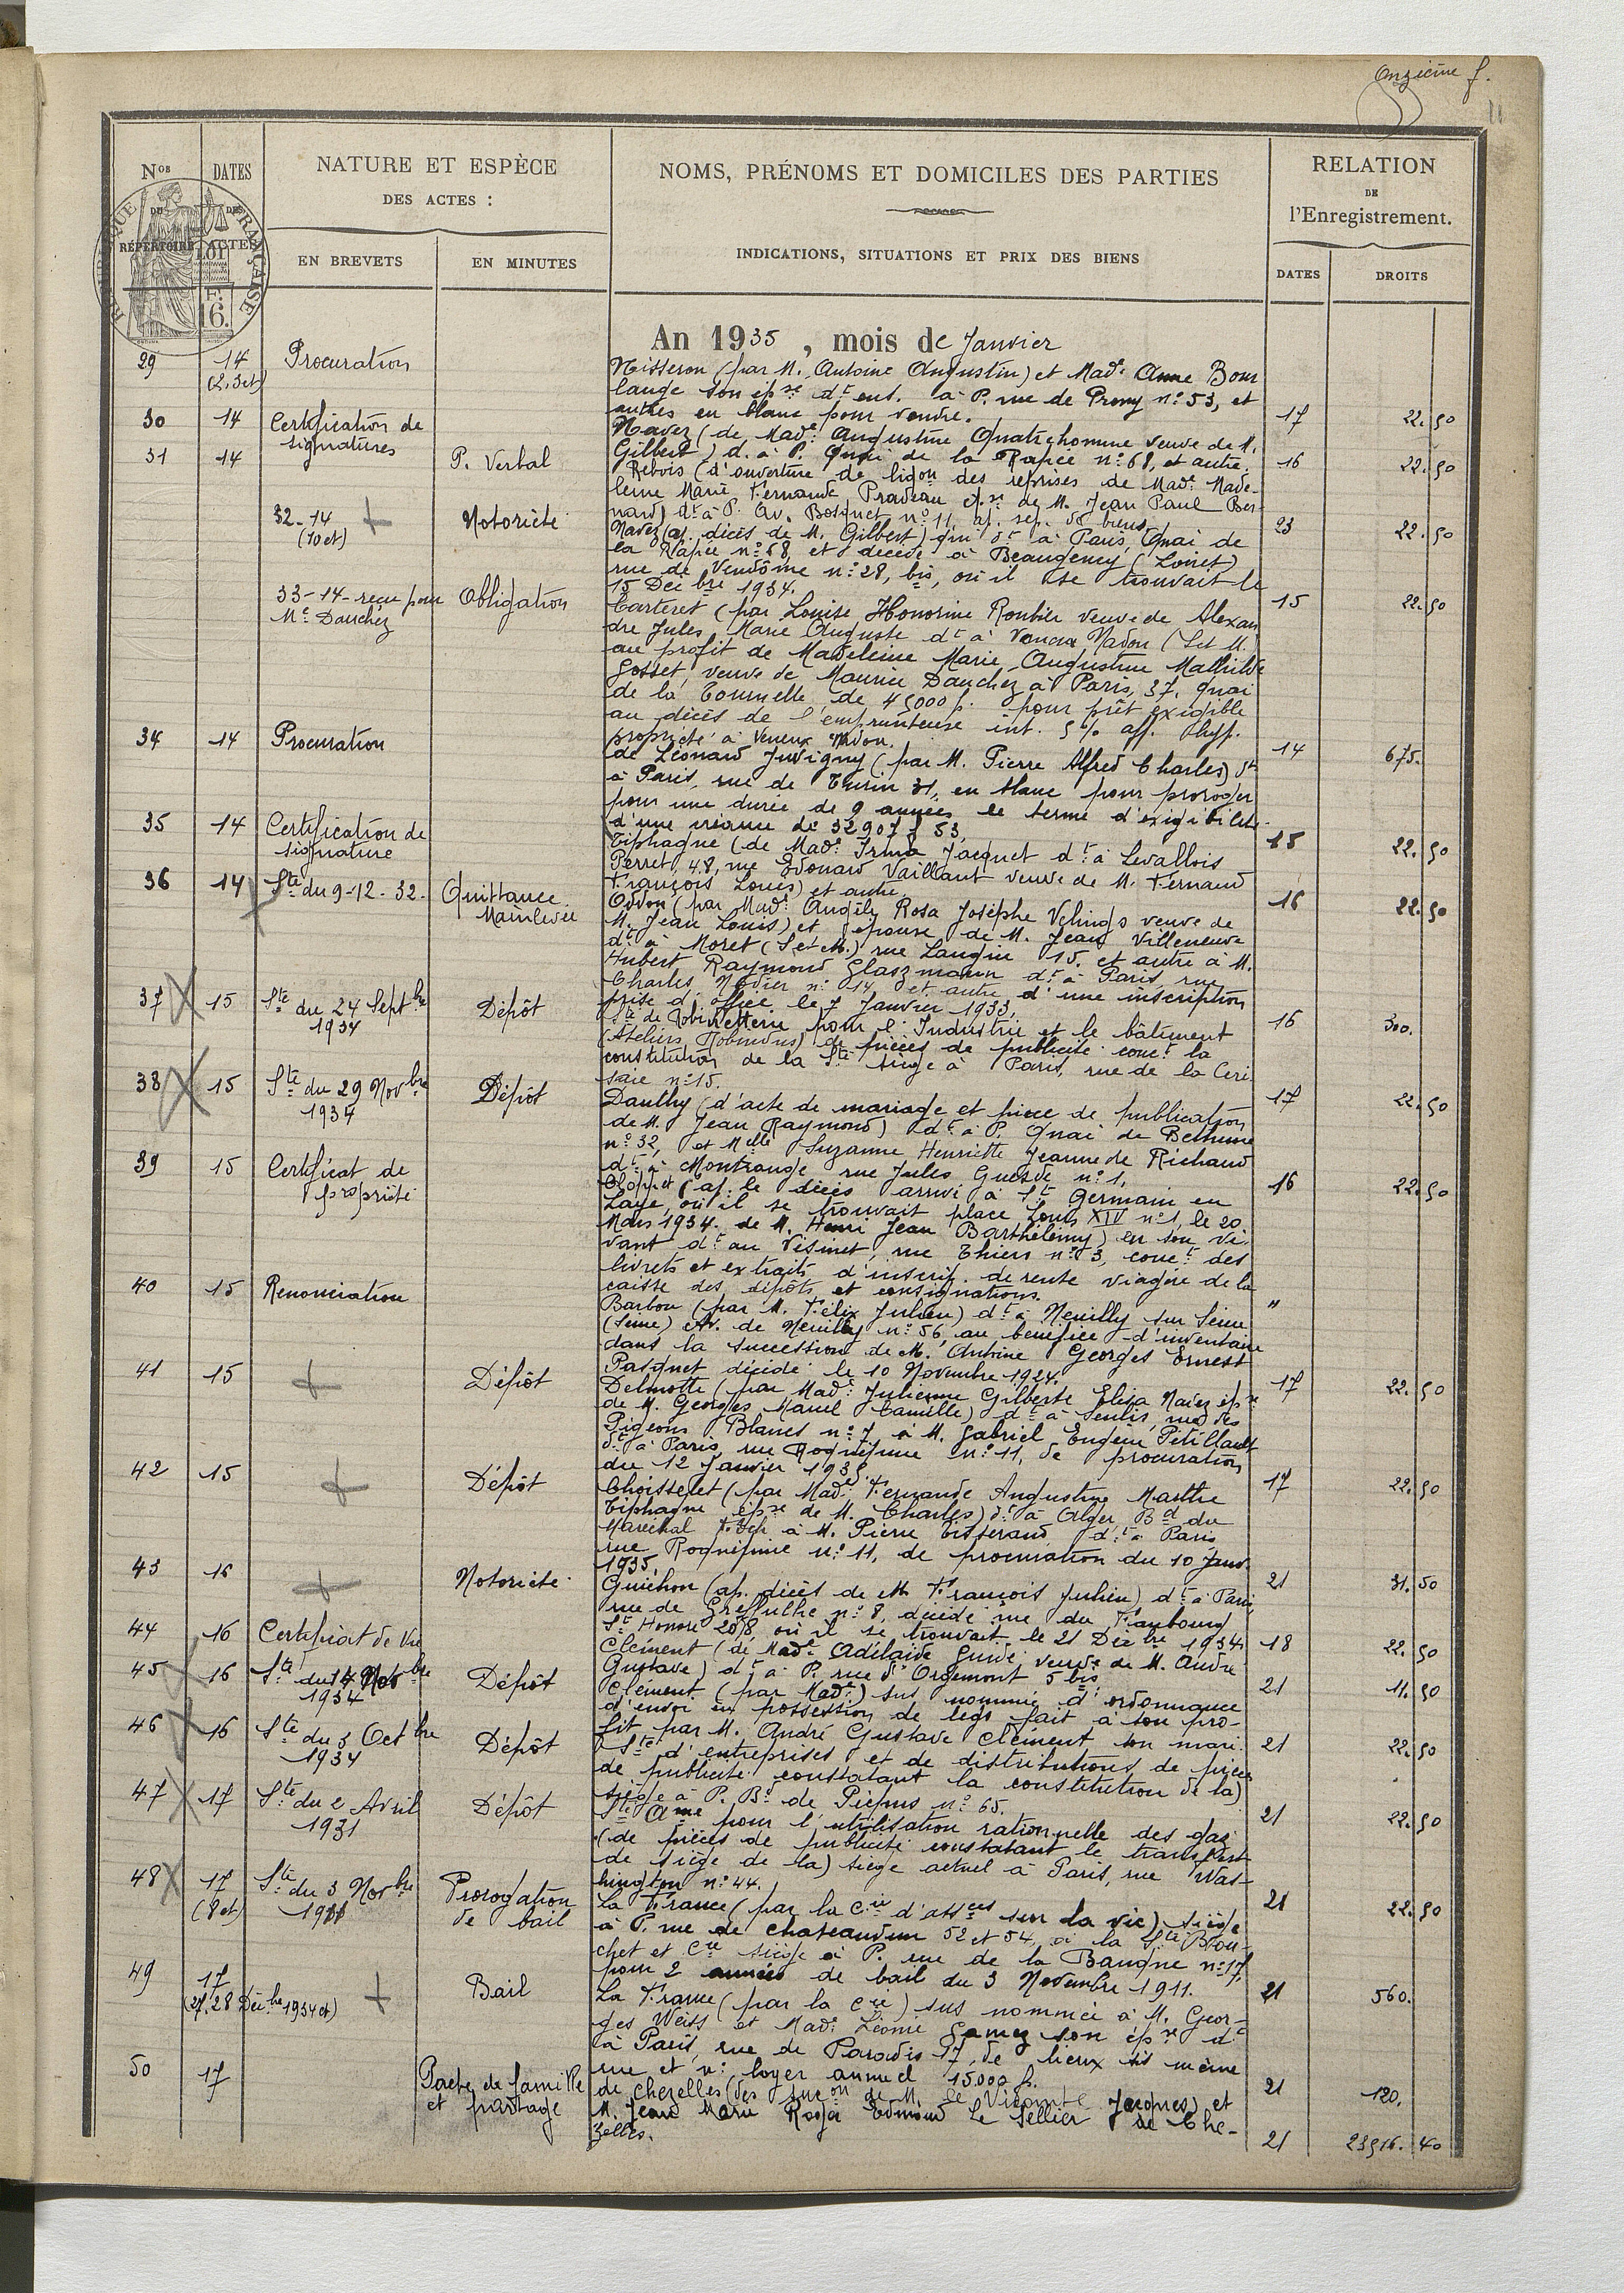 Onzième f.
11
Nos
DATES
NATURE ET ESPÈCE
DES ACTES :
EN BREVETS
EN MINUTES
NOMS, PRÉNOMS ET DOMICILES DES PARTIES
INDICATIONS, SITUATIONS ET PRIX DES BIENS
RELATION
DE
l'Enregistrement.
DATES
DROITS
RÉPERTOIRE
ACTES
LOI
16.
An 1935, mois de Janvier
29 14 Procuration
(2, 3 et)
Nisseron (par M. Antoine Augustin) et Made Anne Bour
lange son épse dt ens. à P. rue de Prony n° 53, et
autres en blanc pour vendre. 17 22.50
30 14 Certification de
signatures
Navez (de Made Augustine Quatrehomme veuve de M.
Gilbert) d. à P. Quai de la Rapée n° 68, et autre. 16 22.50
31 14 P. Verbal
Rebois (d'ouverture de liqon des reprises de Made Made-
leine Marie Fernande Pradeau épse de M. Jean Paul Ber-
nard) dt à P. Av. Bosquet n° 11, ap. sep. de biens. 23 22.50
32-14 Notoriété
(10 et)
Navez (ap. décès de M. Gilbert) qui dt à Paris, Quai de
la Rapée n° 68, et décédé à Beaugency (Loiret)
rue de Vendôme n° 28, bis, où il se trouvait le
15 Décbre 1934. 15 22.50
33-14- reçu pour Obligation
Me Dauchez
Carteret (par Louise Honorine Roubier veuve de Alexan
dre Jules Marie Auguste dt à Veneux Nadon (S et M.
au profit de Madeleine Marie Augustine Mathilde
Gosset, veuve de Maurice Dauchez à Paris, 37, quai
de la Tournelle, de 45000 f. pour prêt exigible
au décès de l'emprunteuse int. 5% aff. hyp.
propriété à Veneux Nadon. 14 675.
34 14 Procuration
de Léonard Juvigny (par M. Pierre Alfred Charles) dt
à Paris, rue de Turin 31, en blanc pour proroger
pour une durée de 9 années le terme d'exigibilité
d'une créance de 32907 f 53. 15 22.50
35 14 Certification de
signature
Tiphagne (de Made Irma Jacquet dt à Levallois
Perret, 48, rue Edouard Vaillant veuve de M. Fernand
François Louis) et autre. 16 22.50
36 14 Ste du 9-12-32. Quittance
Mainlevée
Oddon (par Made Angély Rosa Josèphe Vehings veuve de
M. Jean Louis) et épouse de M. Jean Villeneuve
dt à Moret (S et M.) rue Langin 15. et autre à M.
Hubert Raymond Glaszmann dt à Paris, rue
Charles Nodier n° 14 et autre d'une inscription
prise d'office le 7 Janvier 1933. 16 300.
37 15 Ste du 24 Septbre
1934 Dépôt
Ste de Robinetterie pour l'Industrie et le bâtiment
(Ateliers Robindus) de pièces de publicité conct la
constitution de la Ste siège à Paris, rue de la Ceri-
saie n° 15. 17 22.50
38 15 Ste du 29 Novbre
1934 Dépôt
Dauthy (d'acte de mariage et pièce de publication
de M. Jean Raymond) dt à P. Quai de Bethune
n° 32, et Melle Suzanne Henriette Jeanne de Richaud
dt à Montrouge rue Jules Guesde n° 1. 16 22.50
39 15 Certificat de
propriété
(ap. le décès arrivé à St Germain en
Laye, où il se trouvait place Louis XIV n° 1, le 20
Mars 1934. de M. Henri Jean Barthélemy) en son vi-
vant dt au Vésinet, rue Thiers n° 3, conct des
livrets et extraits d'inscrip. de rente viagère de la
caisse des dépôts et consignations. "
40 15 Renonciation
Barbou (par M. Félix Julien) dt à Neuilly sur Seine
(Seine) Av. de Neuilly n° 56, au bénéfice d'inventaire
dans la succession de M. Antoine Georges Ernest
Pasquet décédé le 10 Novembre 1924. 17 22.50
41 15 Dépôt
Delmotte (par Made Julienne Gilberte Elisa Navez épse
de M. Georges Marcel Camille) dt à Senlis, rue des
Pigeons Blancs n° 7, à M. Gabriel Eugène Petillault
dt à Paris, rue Roquépine n° 11, de procuration
du 12 Janvier 1935. 17 22.50
42 15 Dépôt
Choisselet (par Made Fernande Augustine Marthe
Tiphagne épse de M. Charles) dt à Alger, Bd du
Maréchal Foch à M. Pierre Tisserand dt à Paris
rue Roquépine n° 11, de procuration du 10 Janv.
1935. 21 31.50
43 16 Notoriété
Guichon (ap. décès de M. François Julien) dt à Paris,
rue de Greffulhe n° 8, décédé rue du Faubourg
St Honoré 208, où il se trouvait le 21 Décbre 1934. 18 22.50
44 16 Certificat de Vie
Clément (de Made Adélaïde Guidé veuve de M. André
Gustave) dt à P. rue d'Orgemont 5 bis. 21 11.50
45 16 Ste du 14 Novbre
1934 Dépôt
Clément (par Made) sus nommée d'ordonnance
d'envoi en possession de legs fait à son pro-
fit par M. André Gustave Clément son mari. 21 22.50
46 16 Ste du 5 Octbre
1934 Dépôt
Ste d'entreprises et de distributions de pièces
de publicité constatant la constitution de la)
siège à P. Bd de Picpus n° 65. 21 22.50
47 17 Ste du 2 Avril
1931 Dépôt
Ste Ame pour l'utilisation rationnelle des gaz
(de pièces de publicité constatant le transfert
de siège de la) siège actuel à Paris, rue Was-
hington n° 44. 21 22.50
48 17 Ste du 3 Novbre
(8 et) 1911 Prorogation
de bail
La France (par la Cie d'assces sur la vie) siège
à P. rue de Chateaudun 52 et 54, à la Ste Brou-
chet et Cie siège à P. rue de la Banque n° 17,
pour 2 années de bail du 3 Novembre 1911. 21 560.
49 17 Bail
(27, 28 Décbre 1934 et)
La France (par la Cie) sus nommée à M. Geor-
ges Weiss et Made Léonie Gamez son épse dt
à Paris, rue de Paradis 17, de lieux sis même
rue et n°. loyer annuel 15000 f. 21 120.
50 17 Pacte de famille
et partage
de Chezelles (des sucons de M. le Vicomte Jacques) et
M. Jean Marie Roger Edmond Le Sellier de Che-
zelles. 21 23516.40